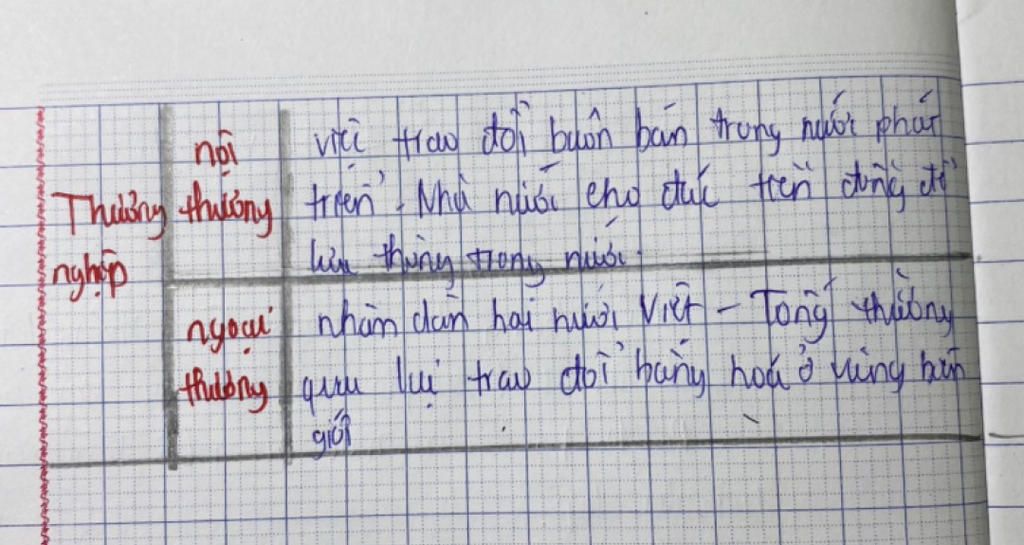 Thương nghiệp
nội thương
việc trao đổi buôn bán trong nước phát
triển. Nhà nước cho đúc tiền đồng để
lưu thông trong nước.
ngoại thương
nhân dân hai nước Việt - Tống thường
qua lại trao đổi hàng hoá ở vùng biên
giới